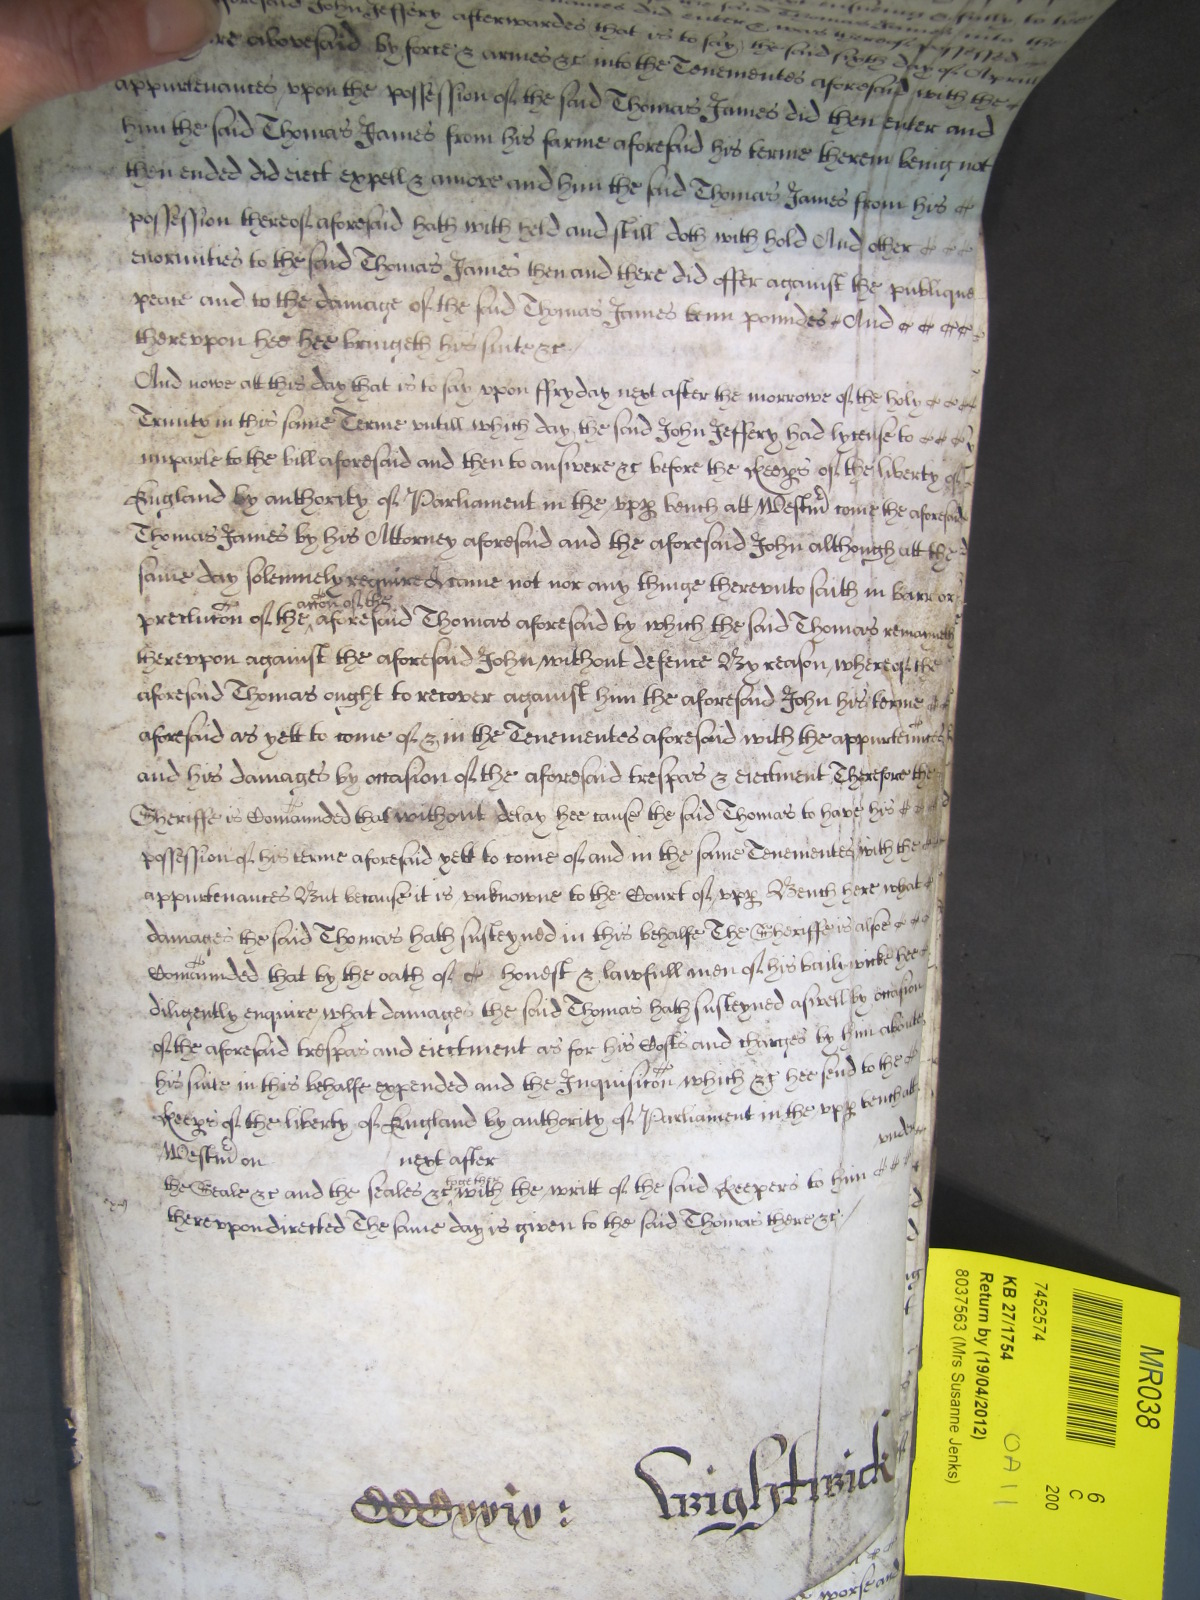 aforesaid John Jeffery afterwardes that is to say the said sixth day of Aprill
above said by force & armes &c into the Tenementes aforesaid with the
appurtenances upon the possession of the said Thomas James did then enter and
him the said Thomas James from his farme aforesaid his terme therein being not
then ended did eiect expell & amove and him the said Thomas James from his
possession thereof aforesaid hath with held and still doth with hold And other
enormities to the said Thomas James then and there did offer against the publique
peace and to the damage of the said Thomas James tenn poundes And
thereupon hee hee bringeth his suite &c
And nowe att this day that is to say upon ffryday next after the morrowe of the holy
Trinity in this same Terme untill which day the said John Jeffery had lycense to
imparle to the bill aforesaid and then to answere &c before the Keeps of the liberty of
England by authority of Parliament in the upp bench att Westm come the aforesaid
Thomas James by his Attorney aforesaid and the aforesaid John although att the
same day solemnely required came not nor any thinge thereunto saith in barr or
preclucon of the accon of the aforesaid Thomas aforesaid by which the said Thomas remayneth
thereupon against the aforesaid John without defence By reason whereof the
aforesaid Thomas ought to recover against him the aforesaid John his terme
aforesaid as yett to come of & in the Tenementes aforesaid with the appurtennces
and his damages by occasion of the aforesaid trespas & eiectment Therefore the
Sheriffe is Comaunded that without delay hee cause the said Thomas to have his
possession of his terme aforesaid yett to come of and in the same Tenementes with the
appurtenances But because it is unknowne to the Court of upp Bench here what
damages the said Thomas hath susteyned in this behalfe The Sheriffe is alsoe
Comaunded that by the oath of honest & lawfull men of his bailywicke hee
diligently enquire what damages the said Thomas hath susteyned aswell by occasion
of the aforesaid trespas and eiectment as for his Costs and charges by him aboute
his suite in this behalfe expended and the Inquisicon which &c hee send to the
Keeps of the liberty of England by authority of Parliament in the upp bench att
Westm on next after under
the Seale &c and the seales &c together with the writt of the said Keepers to him
thereupon directed The same day is given to the said Thomas there &c
Wightwick
MR038
6
C
200
7452574
KB 27/1754
Return by (19/04/2012)
8037563 (Mrs Susanne Jenks)
OA 11
worse and